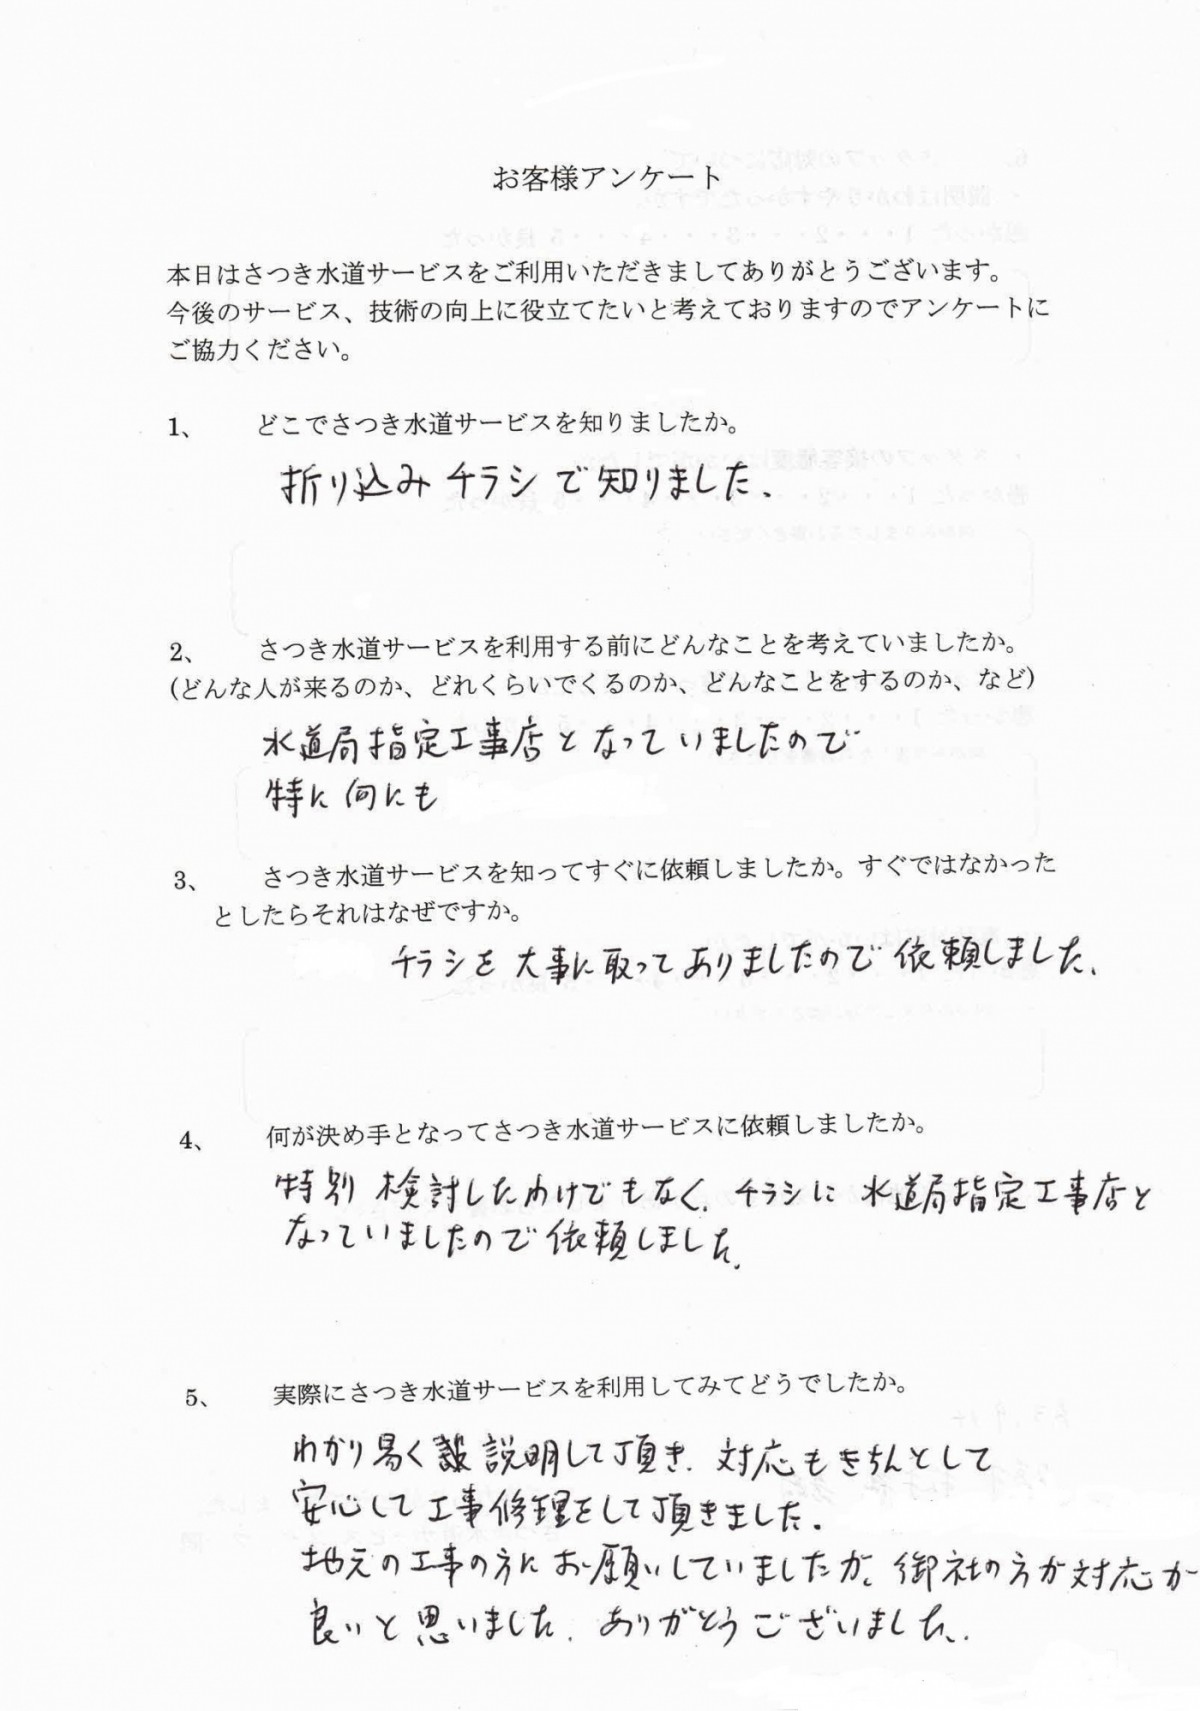 お客様アンケート
本日はさつき水道サービスをご利用いただきましてありがとうございます。
今後のサービス、技術の向上に役立てたいと考えておりますのでアンケートに
ご協力ください。
1、 どこでさつき水道サービスを知りましたか。
折り込みチラシで知りました、
2、 さつき水道サービスを利用する前にどんなことを考えていましたか。
(どんな人が来るのか、どれくらいでくるのか、どんなことをするのか、など)
水道局指定工事店となっていましたので
特に何にも
3、 さつき水道サービスを知ってすぐに依頼しましたか。すぐではなかった
としたらそれはなぜですか。
チラシを大事に取ってありましたので依頼しました、
4、 何が決め手となってさつき水道サービスに依頼しましたか。
特別検討したわけでもなく、チラシに水道局指定工事店と
なっていましたので依頼しました、
5、 実際にさつき水道サービスを利用してみてどうでしたか。
わかり易く説明して頂き、対応もきちんとして
安心して工事修理をして頂きました。
地元の工事の方にお願いしていましたが、御社の方が対応が
良いと思いました、ありがとうございました、